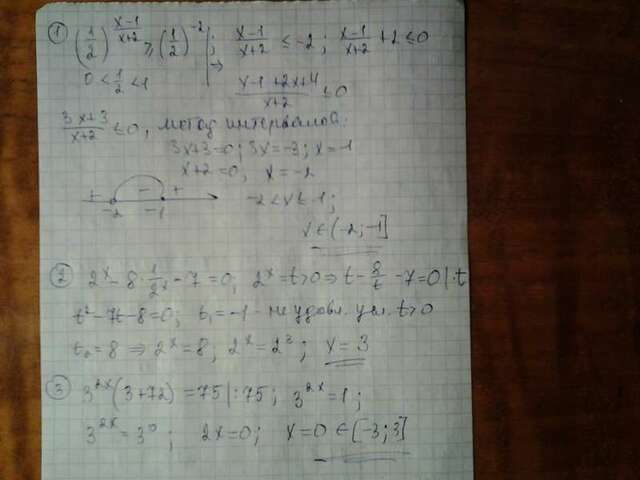 ① (1/2)^((x-1)/(x+2)) ≥ (1/2)^(-2) | ; (x-1)/(x+2) ≤ -2 ; (x-1)/(x+2) + 2 ≤ 0
0 < 1/2 < 1 | → (x-1+2x+4)/(x+2) ≤ 0
(3x+3)/(x+2) ≤ 0, метод интервалов:
3x+3=0; 3x=-3; x=-1
x+2=0, x=-2
+ - +
-2 -1
-2<x≤-1;
x∈(-2;-1]
② 2^x - 8·1/2^x - 7 = 0; 2^x = t>0 ⇒ t - 8/t - 7 = 0 |·t
t² - 7t - 8 = 0; t₁ = -1 - не удовл. усл. t>0
t₂ = 8 ⇒ 2^x = 8; 2^x = 2^3; x = 3
③ 3^(2x)(3+72) = 75 |:75; 3^(2x) = 1;
3^(2x) = 3^0; 2x=0; x=0 ∈ [-3;3]